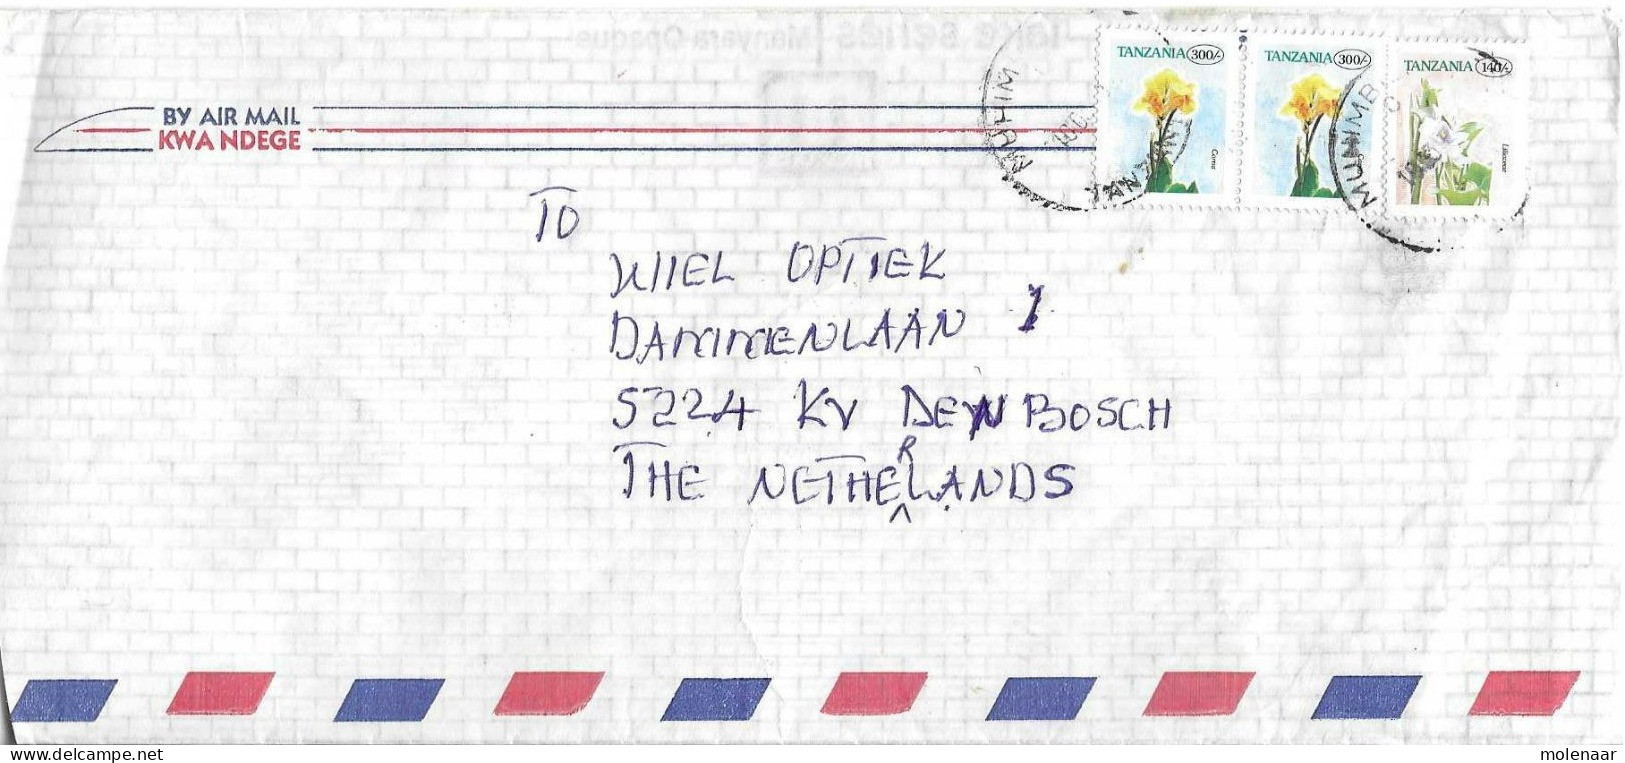 lake series Manyara Opaque
TANZANIA 300/-
TANZANIA 300/-
TANZANIA 140/-
Canna
Liliaceae
MUHIMB
TANZAN
MUHIMB
BY AIR MAIL
KWA NDEGE
TO
WIEL OPTIEK
DAMMENLAAN 1
5224 KV DEN BOSCH
THE NETHERLANDS
www.delcampe.net
molenaar